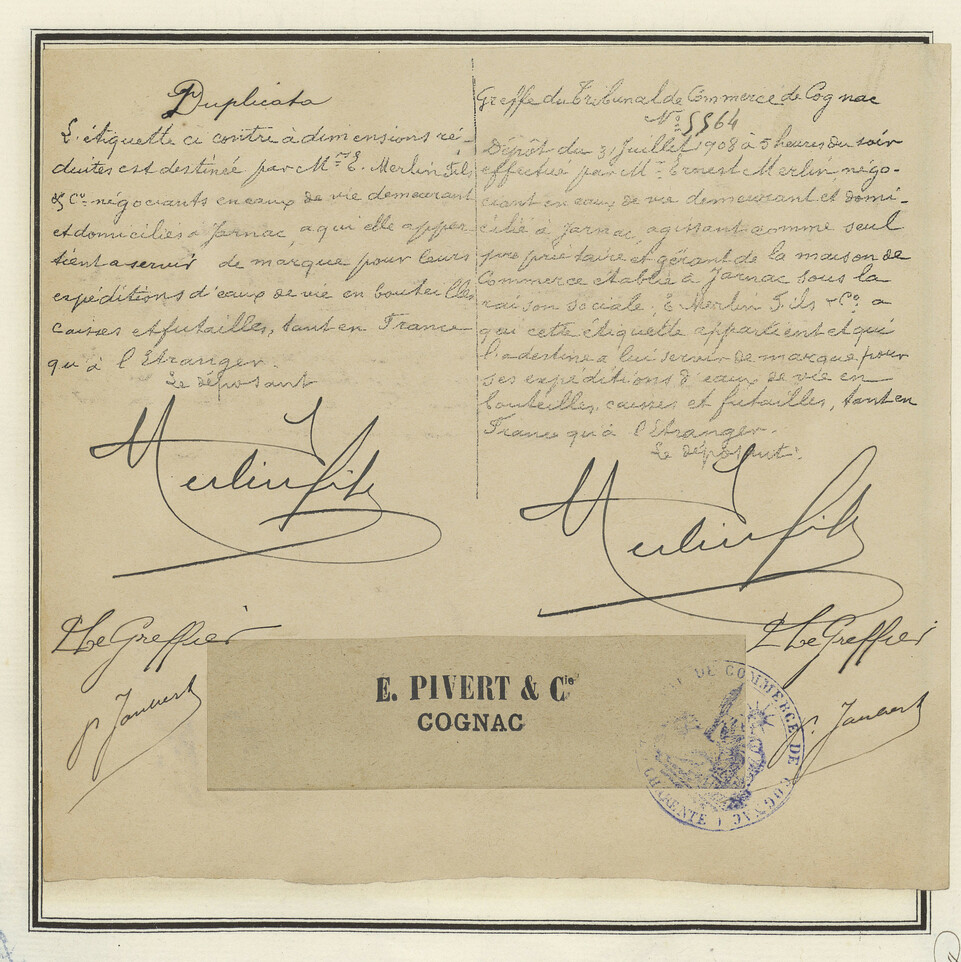 Duplicata
L'étiquette ci contre à dimensions ré-
duites est destinée par Mrs E. Merlin Fils
& Co. négociants en eaux de vie demeurant
et domiciliés à Jarnac, a qui elle appar-
tient a servir de marque pour leurs
expéditions d'eaux de vie en bouteilles
caisses et futailles, tant en France
qu'à l'Etranger.
Le déposant
Merlin fils
Le Greffier
Greffe du Tribunal de Commerce de Cognac
No. 5564
Dépôt du 31 Juillet 1908 à 5 heures du soir
effectué par Mr Ernest Merlin, négo-
ciant en eaux de vie demeurant et domi-
cilié à Jarnac, agissant comme seul
propriétaire et gérant de la maison de
Commerce établie à Jarnac sous la
raison sociale, E Merlin Fils & Co. a
qui cette étiquette appartient et qui
l'a destine a lui servir de marque pour
ses expéditions d'eaux de vie en
bouteilles, caisses et futailles, tant en
France qu'à l'Etranger.
Le déposant.
Merlin fils
Le Greffier
E. PIVERT & Cie
COGNAC
DE COMMERCE DE COGNAC
CHARENTE